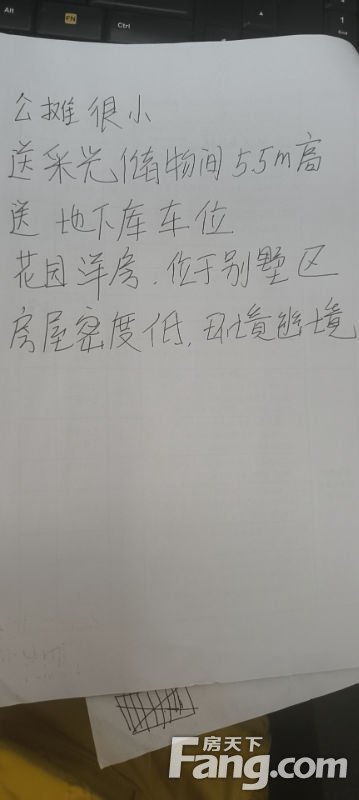 Alt
FN
Ctrl
公摊很小
送采光储物间5.5m高
送 地下库车位
花园洋房.位于别墅区
房屋密度低.环境幽境
房天下
Fang.com